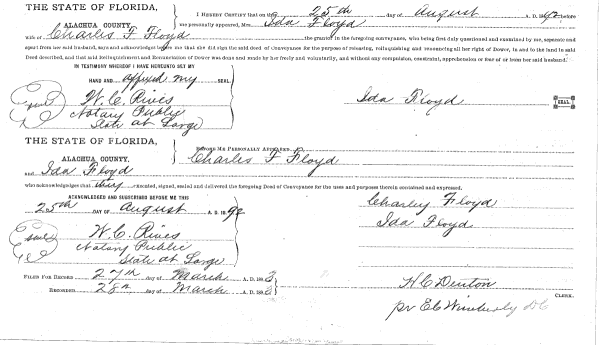 THE STATE OF FLORIDA,
ALACHUA COUNTY.
I HEREBY CERTIFY that on the 25th day of August A. D. before
me personally appeared, Mrs. Ida Floyd
wife of Charles F Floyd the grantor in the foregoing conveyance, who being first duly questioned and examined by me, separate and
apart from her said husband, says and acknowledges before me that she did sign the said deed of Conveyance for the purpose of releasing, relinquishing and renouncing all her right of Dower, in and to the land in said
Deed described, and that said Relinquishment and Renunciation of Dower was done and made by her freely and voluntarily, and without any compulsion, constraint, apprehension or fear of or from her said husband.
IN TESTIMONY WHEREOF I HAVE HEREUNTO SET MY
HAND AND affixed my SEAL
W. C. Rives
Notary Public
State at Large
Seal
Ida Floyd SEAL.
THE STATE OF FLORIDA,
ALACHUA COUNTY.
BEFORE ME PERSONALLY APPEARED
Charles F Floyd
and Ida Floyd
who acknowledges that they executed, signed, sealed and delivered the foregoing Deed of Conveyance for the uses and purposes therein contained and expressed.
ACKNOWLEDGED AND SUBSCRIBED BEFORE ME THIS
25th DAY OF August A. D. 18
W. C. Rives
Notary Public
State at Large
Seal
Charley Floyd
Ida Floyd
FILED FOR RECORD 27th day of March A. D. 188
RECORDED 28th day of March A. D. 188
H C Denton CLERK.
pr E C Wimberly D C